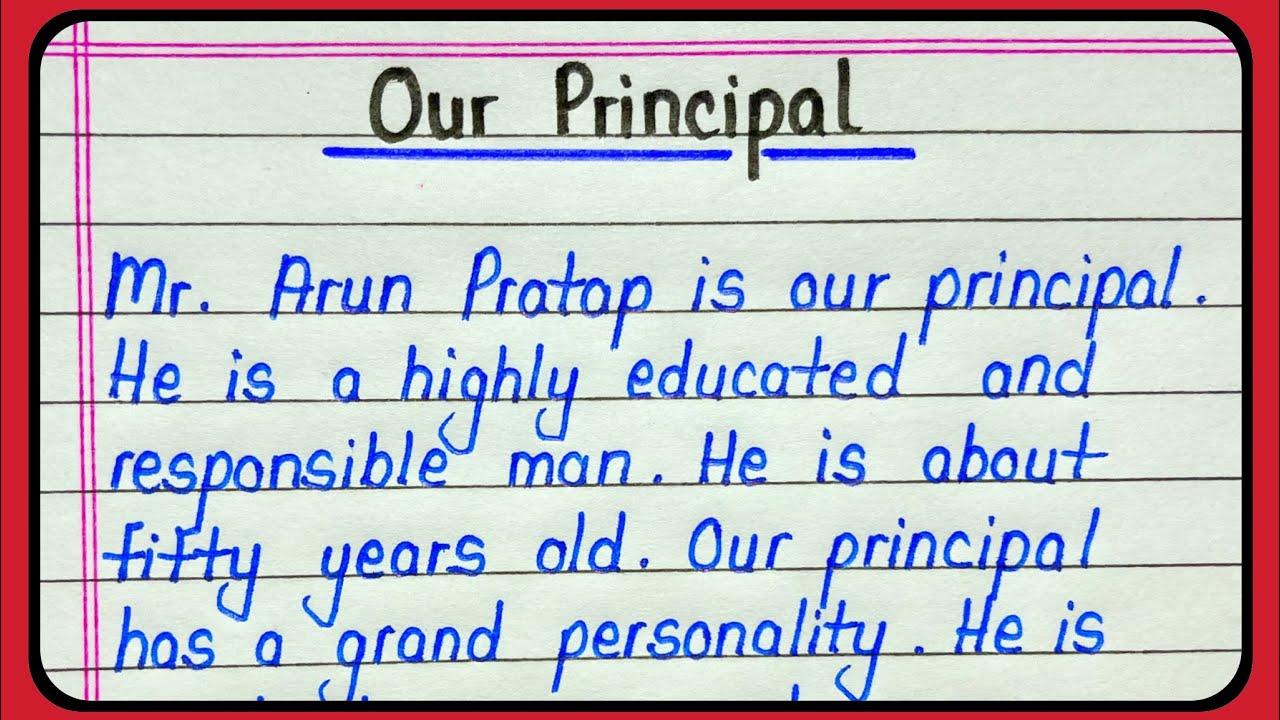 Our Principal
Mr. Arun Pratap is our principal.
He is a highly educated and
responsible man. He is about
fifty years old. Our principal
has a grand personality. He is